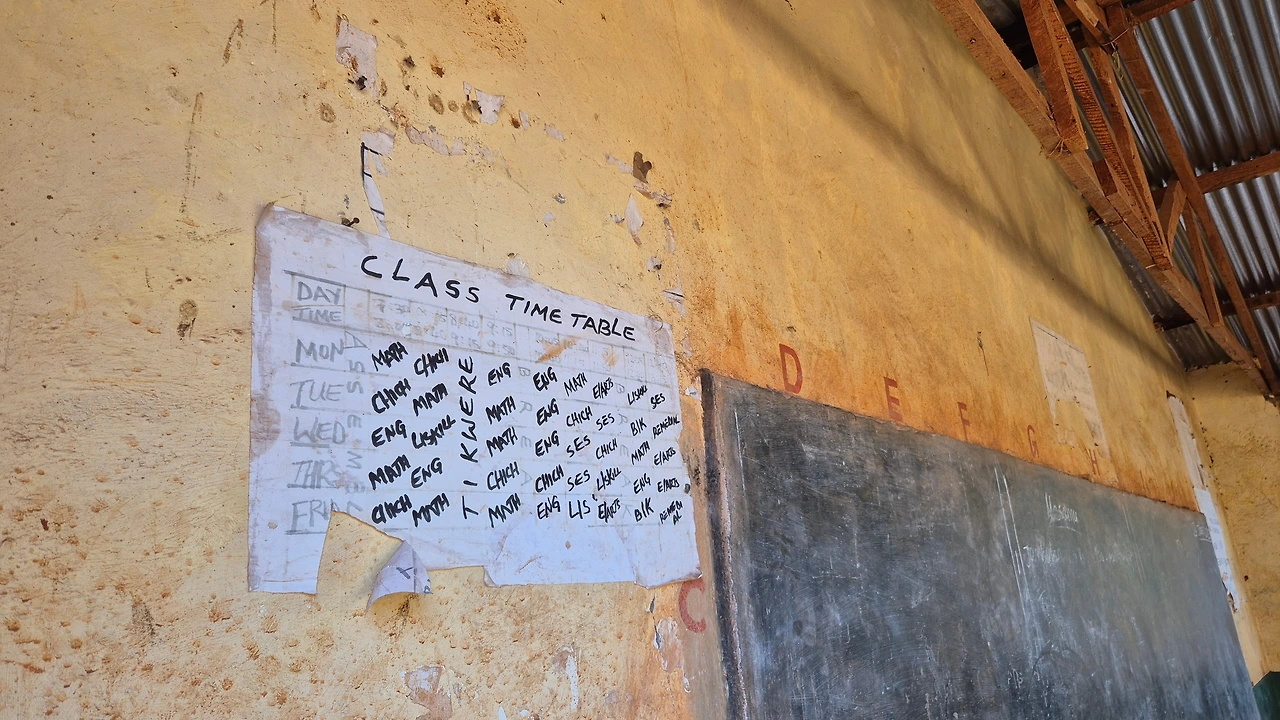 CLASS TIME TABLE
DAY
TIME
MON MATH CHICH ENG ENG MATH E/ARTS LISKILL SES
TUE CHICH MATH MATH ENG CHICH SES BIK REMEDIAL
WED ENG LISKILL MATH ENG SES CHICH MATH E/ARTS
THRS MATH ENG CHICH CHICH SES LISKILL ENG E/ARTS
FRI CHICH MATH MATH ENG LIS E/ARTS BIK REMEDI
AL
TIKWERE
C
D E F G H